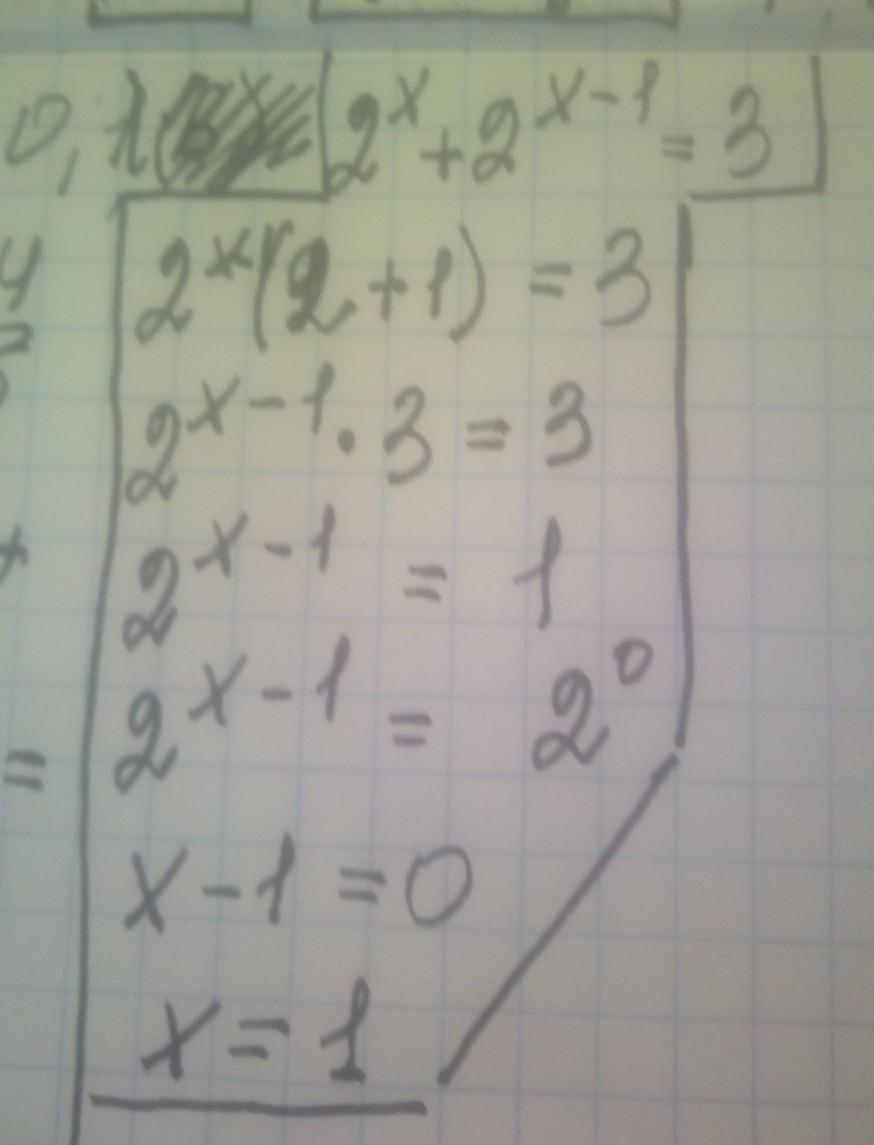 0,1 2^x + 2^{x-1} = 3
2^x(2+1) = 3
2^{x-1} · 3 = 3
2^{x-1} = 1
2^{x-1} = 2^0
=
x - 1 = 0
x = 1